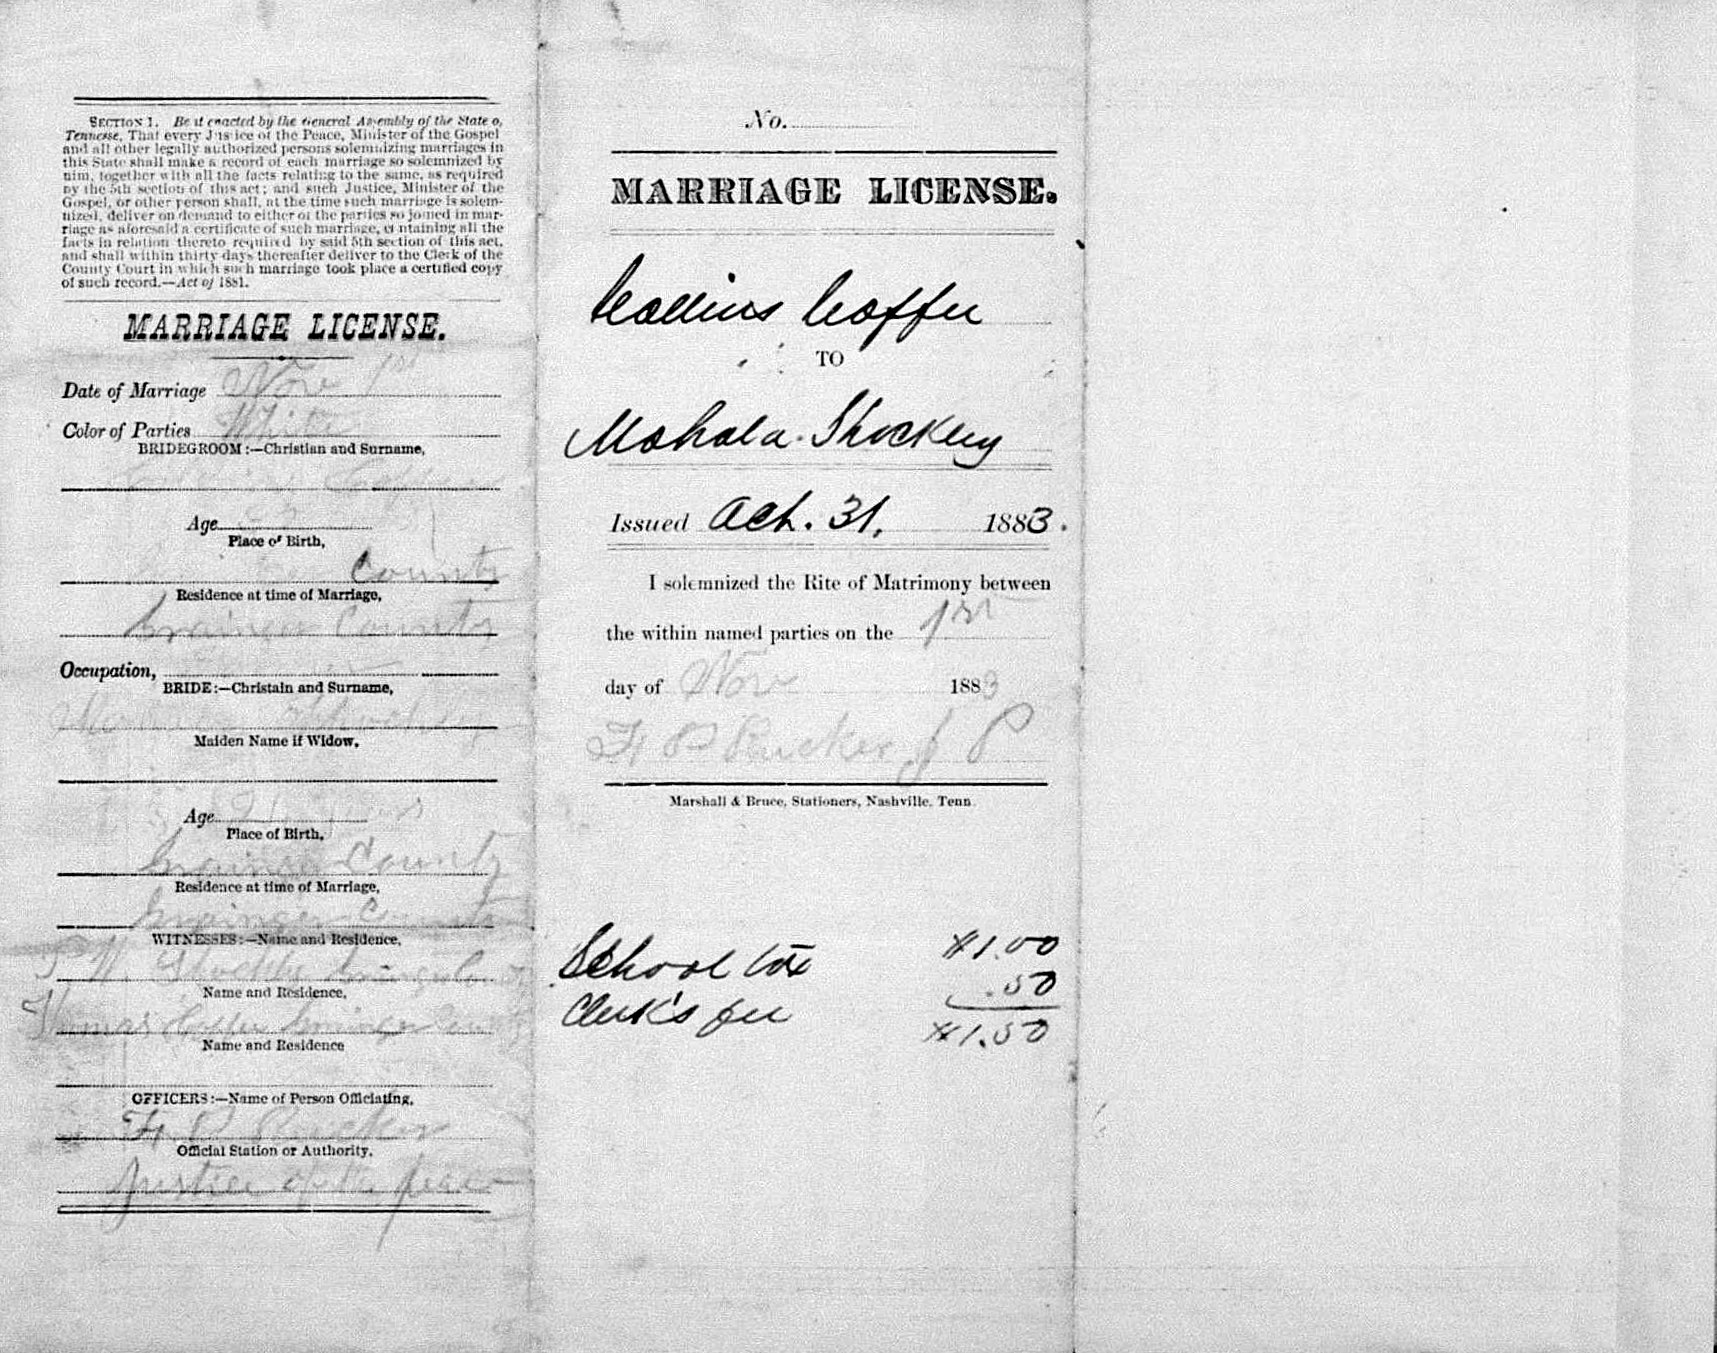 SECTION 1. Be it enacted by the General Assembly of the State o,
Tennesse, That every Jus ice of the Peace, Minister of the Gospel
and all other legally authorized persons solemnizing marriages in
this State shall make a record of each marriage so solemnized by
him, together with all the facts relating to the same, as required
by the 5th section of this act; and such Justice, Minister of the
Gospel, or other person shall, at the time such marriage is solem-
nized, deliver on demand to either of the parties so joined in mar-
riage as aforesaid a certificate of such marriage, c ntaining all the
facts in relation thereto required by said 5th section of this act,
and shall within thirty days thereafter deliver to the Clerk of the
County Court in which such marriage took place a certified copy
of such record.—Act of 1881.
MARRIAGE LICENSE.
Date of Marriage Nov 1st
Color of Parties White
BRIDEGROOM:—Christian and Surname,
Age
Place of Birth,
County
Residence at time of Marriage,
Grainger County
Occupation,
BRIDE:—Christain and Surname,
Maiden Name if Widow,
Age 21
Place of Birth,
Grainger County
Residence at time of Marriage,
Grainger County
WITNESSES:—Name and Residence,
Name and Residence,
Thomas
Name and Residence
OFFICERS:—Name of Person Officiating,
H P Rucker
Official Station or Authority,
Justice of the peace
No.
MARRIAGE LICENSE.
Callins Coffee
TO
Mahala Shockley
Issued Oct. 31, 1883.
I solemnized the Rite of Matrimony between
the within named parties on the 1st
day of Nov 1883
H P Rucker J P
Marshall & Bruce, Stationers, Nashville, Tenn
School tax $1.00
Clerk's fee .50
$1.50